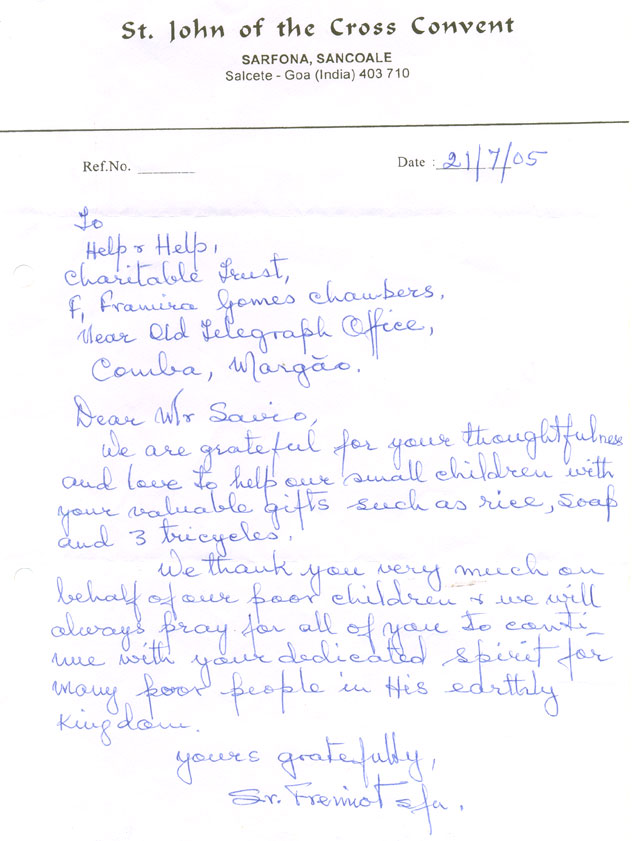 St. John of the Cross Convent
SARFONA, SANCOALE
Salcete - Goa (India) 403 710
Ref.No. ______ Date : 21/7/05
To
Help & Help,
Charitable Trust,
F, Framira Gomes Chambers,
Near Old Telegraph Office,
Comba, Margão.
Dear Mr Savio,
We are grateful for your thoughtfulness
and love to help our small children with
your valuable gifts such as rice, soap
and 3 tricycles.
We thank you very much on
behalf of our poor children & we will
always pray for all of you to conti-
nue with your dedicated spirit for
many poor people in His earthly
Kingdom.
yours gratefully,
Sr.